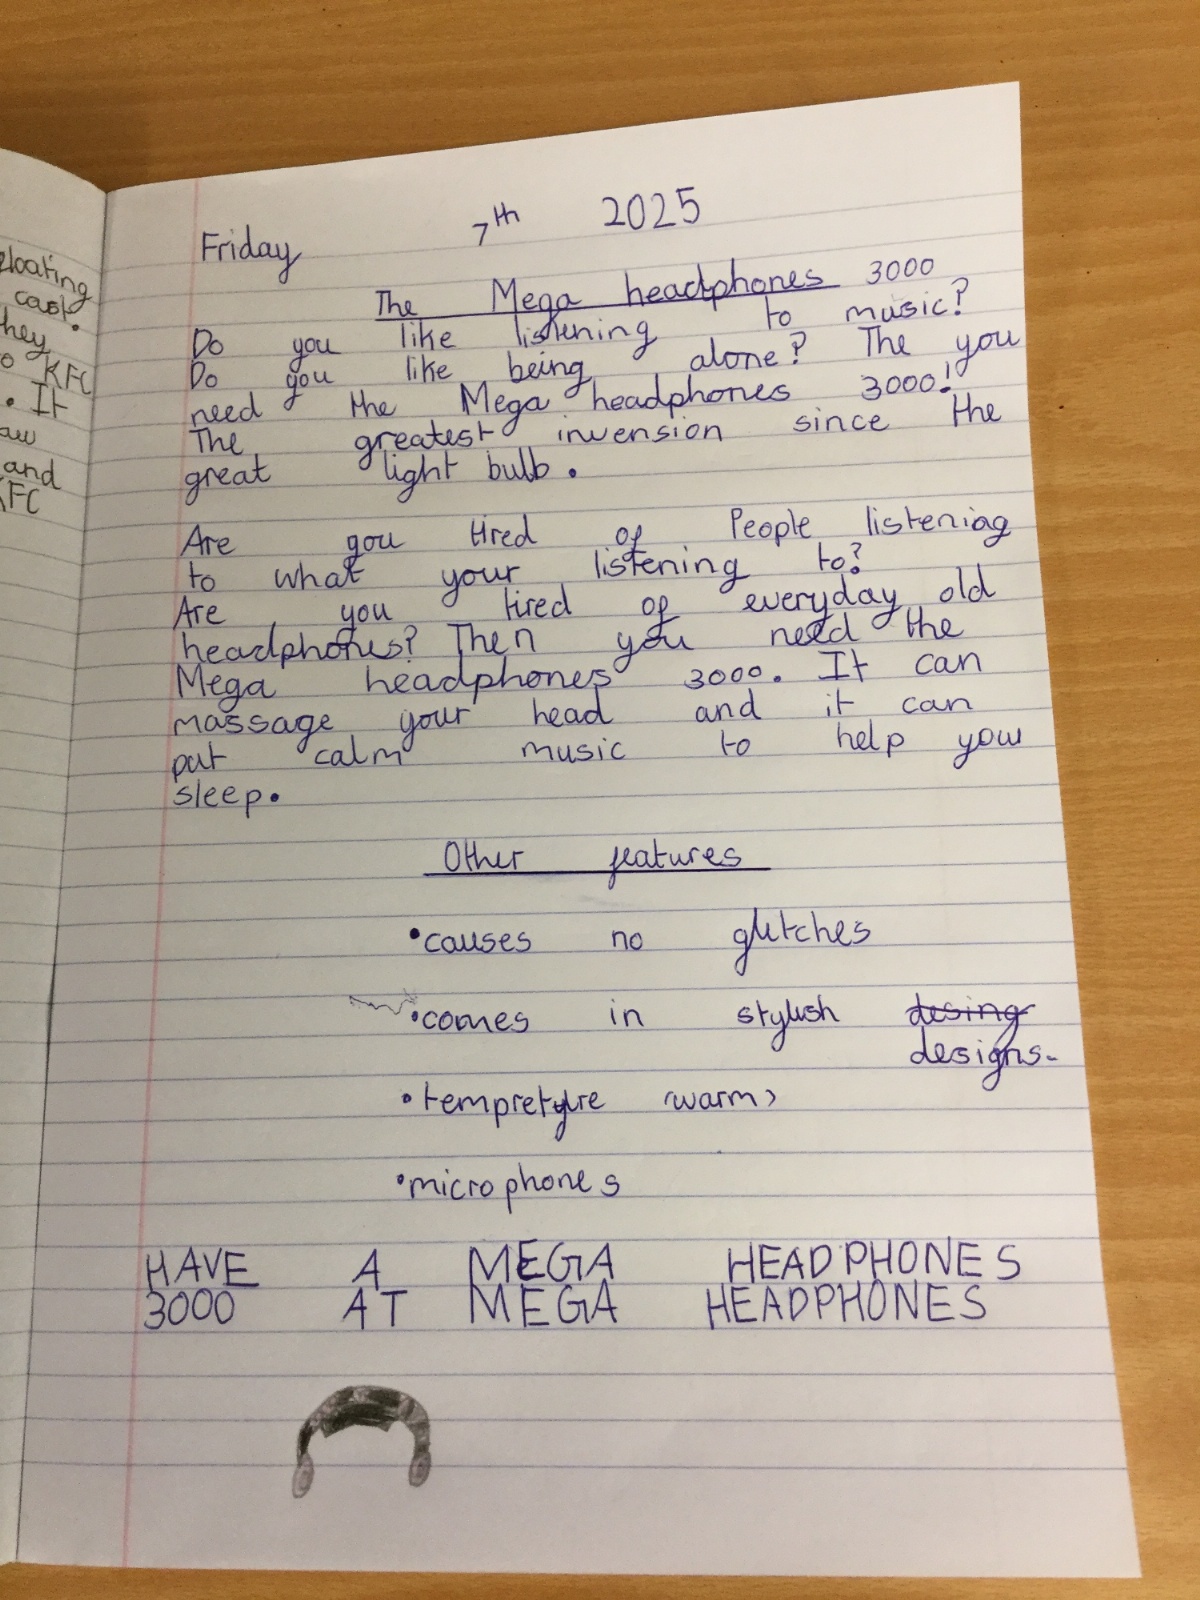 floating
cast.
they
to KFC
. It
aw
and
KFC
Friday 7th 2025
The Mega headphones 3000
Do you like listening to music?
Do you like being alone? The you
need the Mega headphones 3000!
The greatest invension since the
great light bulb.
Are you tired of People listening
to what your listening to?
Are you tired of everyday old
headphones? Then you need the
Mega headphones 3000. It can
massage your head and it can
put calm music to help you
sleep.
Other features
•causes no glitches
•comes in stylish desing
designs.
•tempretyure (warm)
•microphones
HAVE A MEGA HEADPHONES
3000 AT MEGA HEADPHONES